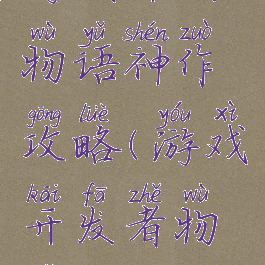 wù yǔ shén zuò
物语神作
gōng lüè ( yóu xì
攻略(游戏
kāi fā zhě wù
开发者物